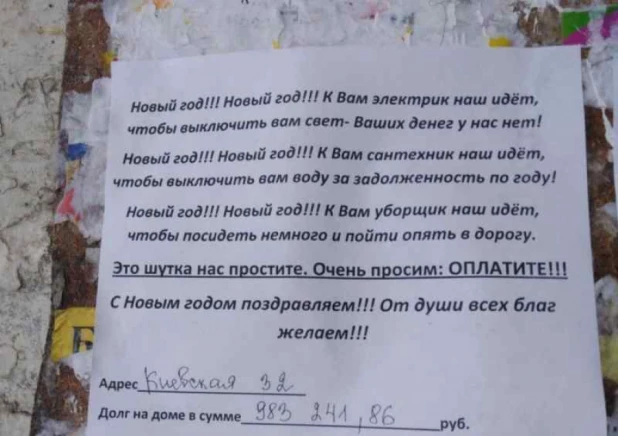 Новый год!!! Новый год!!! К Вам электрик наш идёт,
чтобы выключить вам свет- Ваших денег у нас нет!
Новый год!!! Новый год!!! К Вам сантехник наш идёт,
чтобы выключить вам воду за задолженность по году!
Новый год!!! Новый год!!! К Вам уборщик наш идёт,
чтобы посидеть немного и пойти опять в дорогу.
Это шутка нас простите. Очень просим: ОПЛАТИТЕ!!!
С Новым годом поздравляем!!! От души всех благ
желаем!!!
Адрес Киевская 32
Долг на доме в сумме 983 241,86 руб.